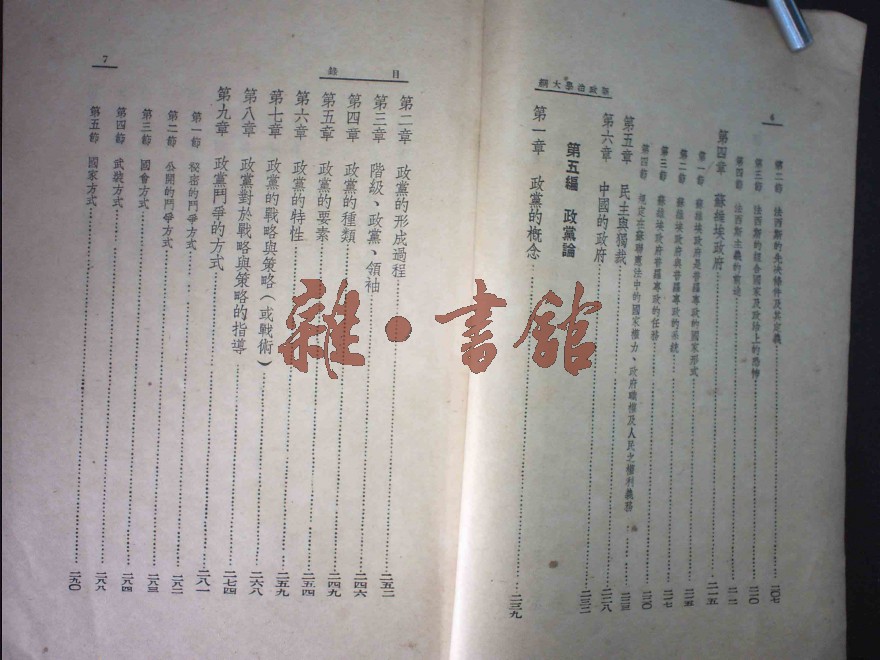 6
新政治學大綱
第二節 法西斯的先決條件及其定義 二〇七
第三節 法西斯的組合國家及政治上的恐怖 二一〇
第四節 法西斯主義的前途 二一一
第四章 蘇維埃政府 二一五
第一節 蘇維埃政府是普羅專政的國家形式 二一五
第二節 蘇維埃政府與普羅專政的系統
第三節 蘇維埃政府普羅專政的任務 二一七
第四節 規定在蘇聯憲法中的國家權力、政府職權及人民之權利義務
第五章 民主與獨裁
第六章 中國的政府
第五編 政黨論
第一章 政黨的概念 二三九
目 錄
7
第二章 政黨的形成過程 二五二
第三章 階級、政黨、領袖
第四章 政黨的種類 二四六
第五章 政黨的要素 二四九
第六章 政黨的特性 二五四
第七章 政黨的戰略與策略(或戰術) 二五九
第八章 政黨對於戰略與策略的指導 二六八
第九章 政黨鬥爭的方式 二七四
第一節 秘密的鬥爭方式 二八一
第二節 公開的鬥爭方式 二八二
第三節 國會方式 二八三
第四節 武裝方式 二八四
第五節 國家方式 二九〇
雜·書館